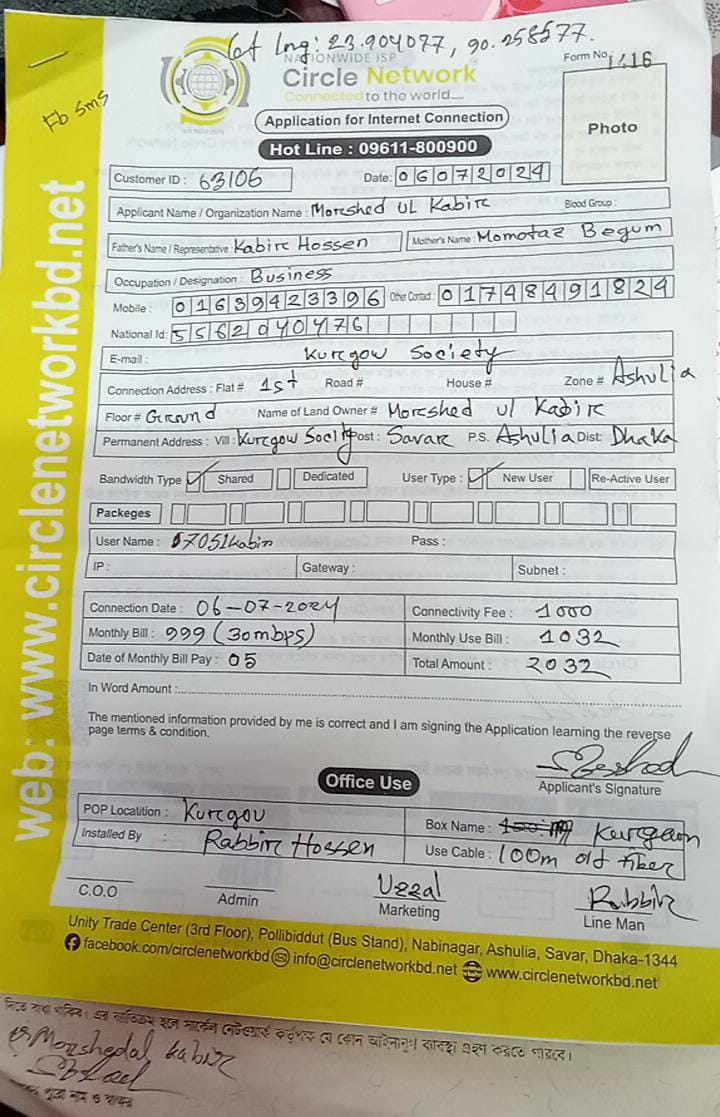 Lat lng: 23.904077, 90.258577.
NATIONWIDE ISP
Form No: 1416
Circle Network
Connected to the world....
Fb sms
Application for Internet Connection
Photo
Hot Line : 09611-800900
Customer ID : 63106 Date: 06072024
Applicant Name / Organization Name : Morshed UL Kabir Blood Group :
Father's Name / Representative : Kabir Hossen Mother's Name : Momotaz Begum
Occupation / Designation : Business
Mobile : 01639423396 Other Contact : 01748491824
National Id: 5562040476
E-mail : Kurgow Society
Connection Address : Flat # 1st Road # House # Zone # Ashulia
Floor # Grund Name of Land Owner # Morshed ul Kabir
Permanent Address : Vill : Kurgow Socity Post : Savar P.S. Ashulia Dist: Dhaka
Bandwidth Type Shared Dedicated User Type : New User Re-Active User
Packeges
User Name : 7051kabir Pass :
IP : Gateway : Subnet :
Connection Date : 06-07-2024 Connectivity Fee : 1000
Monthly Bill : 999 (30mbps) Monthly Use Bill : 1032
Date of Monthly Bill Pay : 05 Total Amount : 2032
In Word Amount :
The mentioned information provided by me is correct and I am signing the Application learning the reverse
page terms & condition.
Applicant's Signature
Office Use
POP Locatition : Kurgou Box Name : Kurgaon
Installed By : Rabbir Hossen Use Cable : 100m old fiber
Uzzal Rabbir
C.O.O Admin Marketing Line Man
Unity Trade Center (3rd Floor), Pollibiddut (Bus Stand), Nabinagar, Ashulia, Savar, Dhaka-1344
facebook.com/circlenetworkbd info@circlenetworkbd.net www.circlenetworkbd.net
web: www.circlenetworkbd.net
দিতে বাধ্য থাকিব। এর ব্যতিক্রম হলে সার্কেল নেটওয়ার্ক কর্তৃপক্ষ যে কোন আইনানুগ ব্যবস্থা গ্রহণ করতে পারবে।
Morshedal Kabir
নাম ও স্বাক্ষর